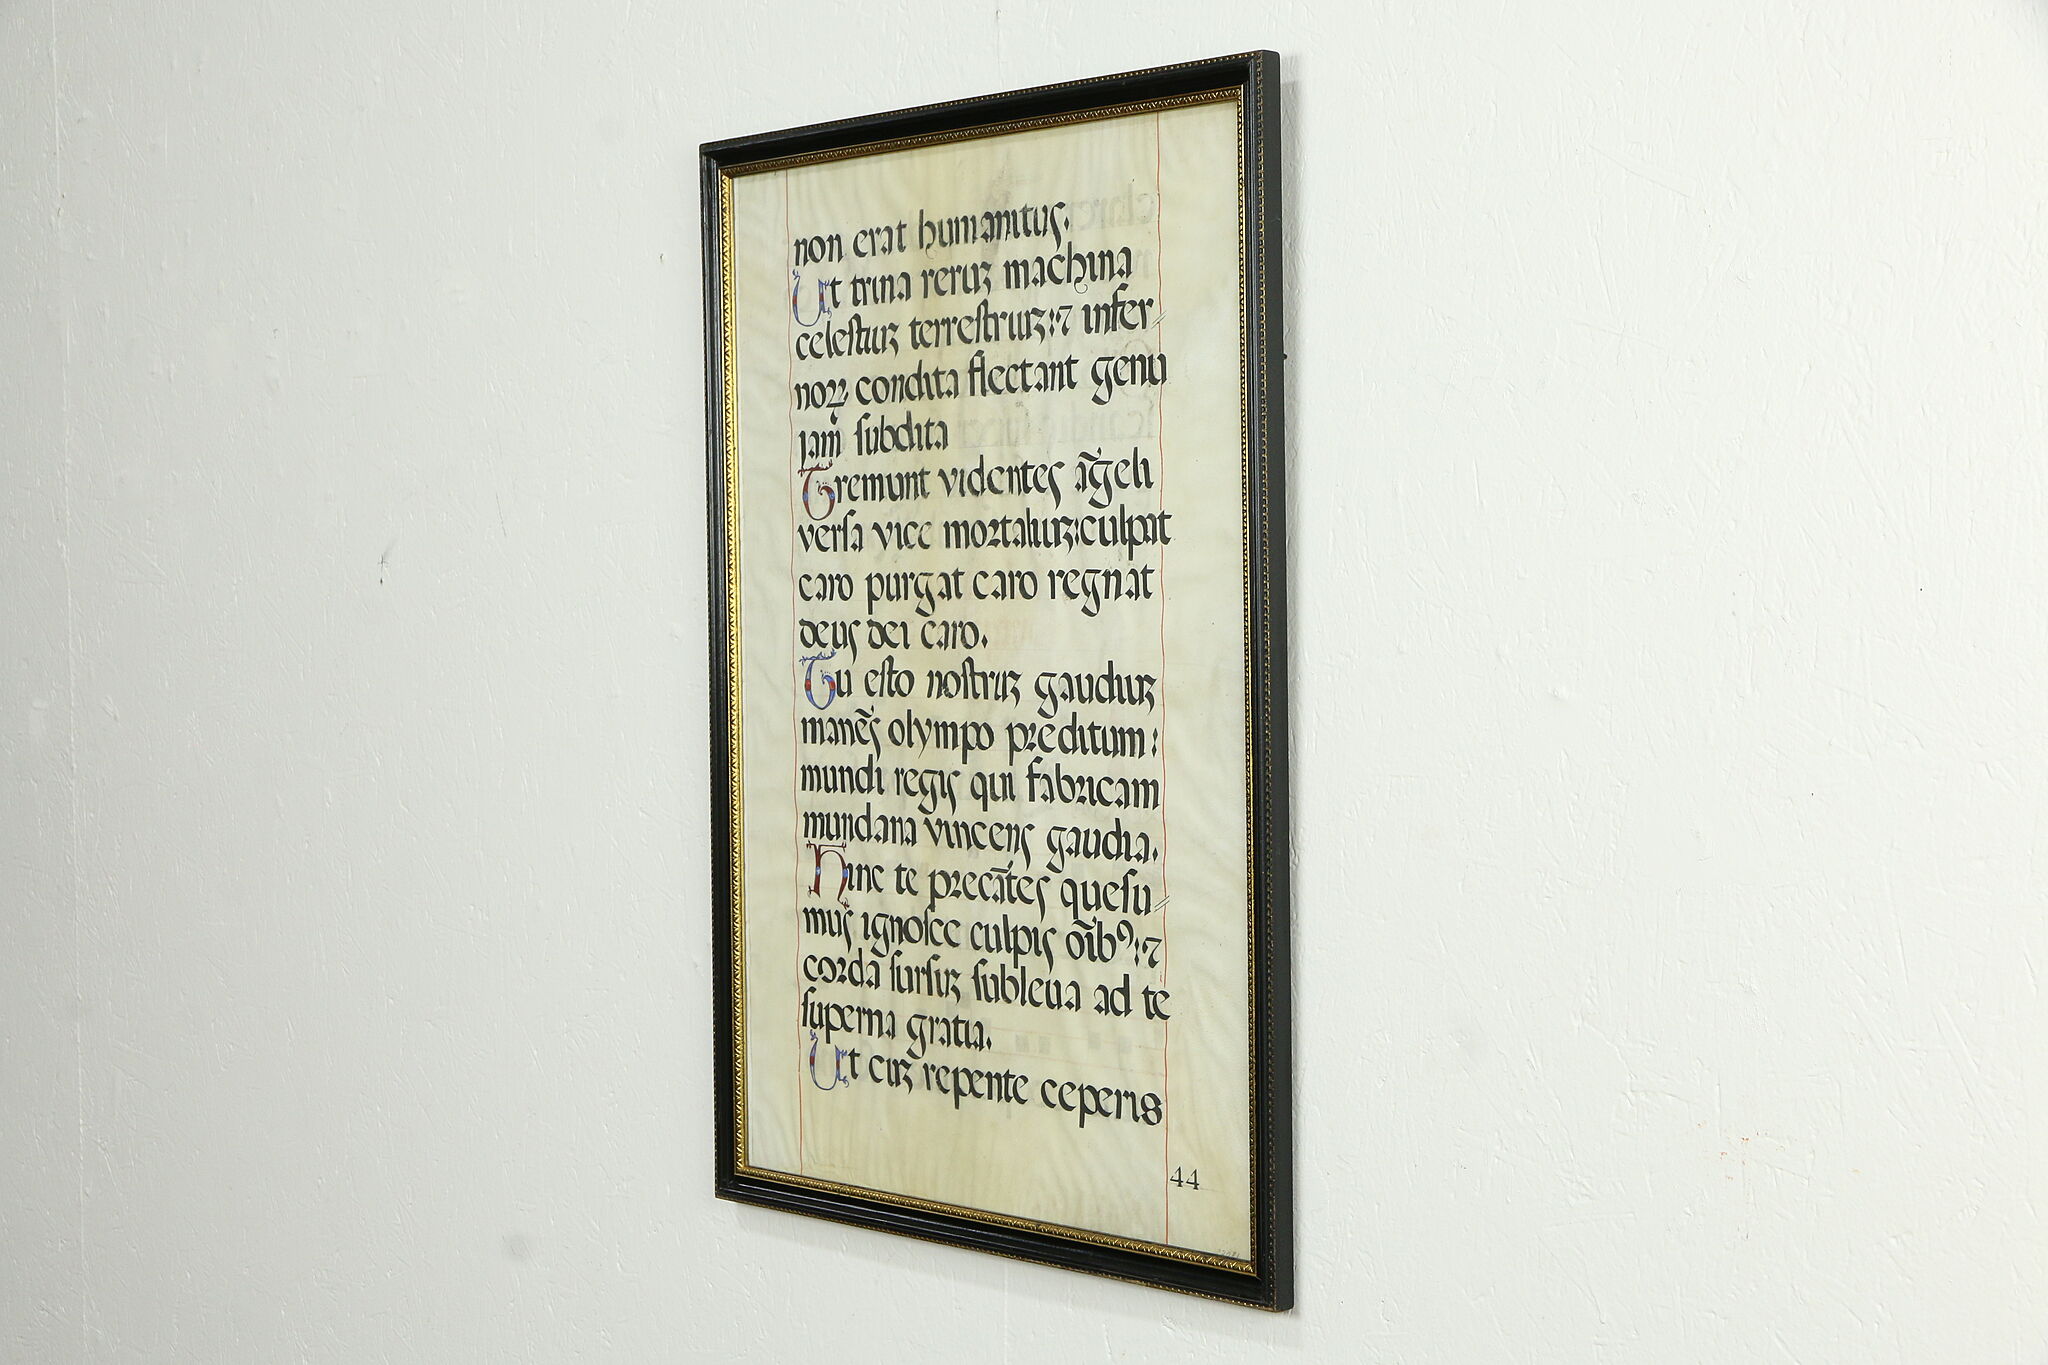 non erat humanitus.
Ut trina reruꝫ machina
celeſtiuꝫ terreſtriuꝫ:⁊ infer⸗
noꝝ condita flectant genu
jam ſubdita
Tremunt videntes āgeli
verſa vice moꝛtaliuꝫ:culpat
caro purgat caro regnat
deus dei caro.
Tu eſto noſtruꝫ gaudiuꝫ
manēs olympo pꝛeditum:
mundi regis qui fabꝛicam
mundana vincens gaudia.
Hinc te pꝛecātes queſu⸗
mus ignoſce culpis oīb⁹:⁊
coꝛda ſurſuꝫ ſubleua ad te
ſuperna gratia.
Ut cuꝫ repente ceperis
44